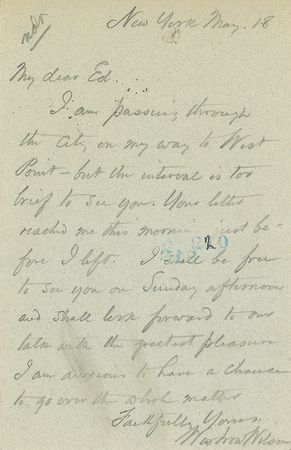 New York May. 18
My dear Ed.
I am passing through
the City on my way to West
Point – but the interval is too
brief to see you. Your letter
reached me this morning just be-
fore I left. I shall be free
to see you on Sunday afternoon
and shall look forward to our
talk with the greatest pleasure
I am anxious to have a chance
to go over the whole matter
Faithfully Yours.
Woodrow Wilson